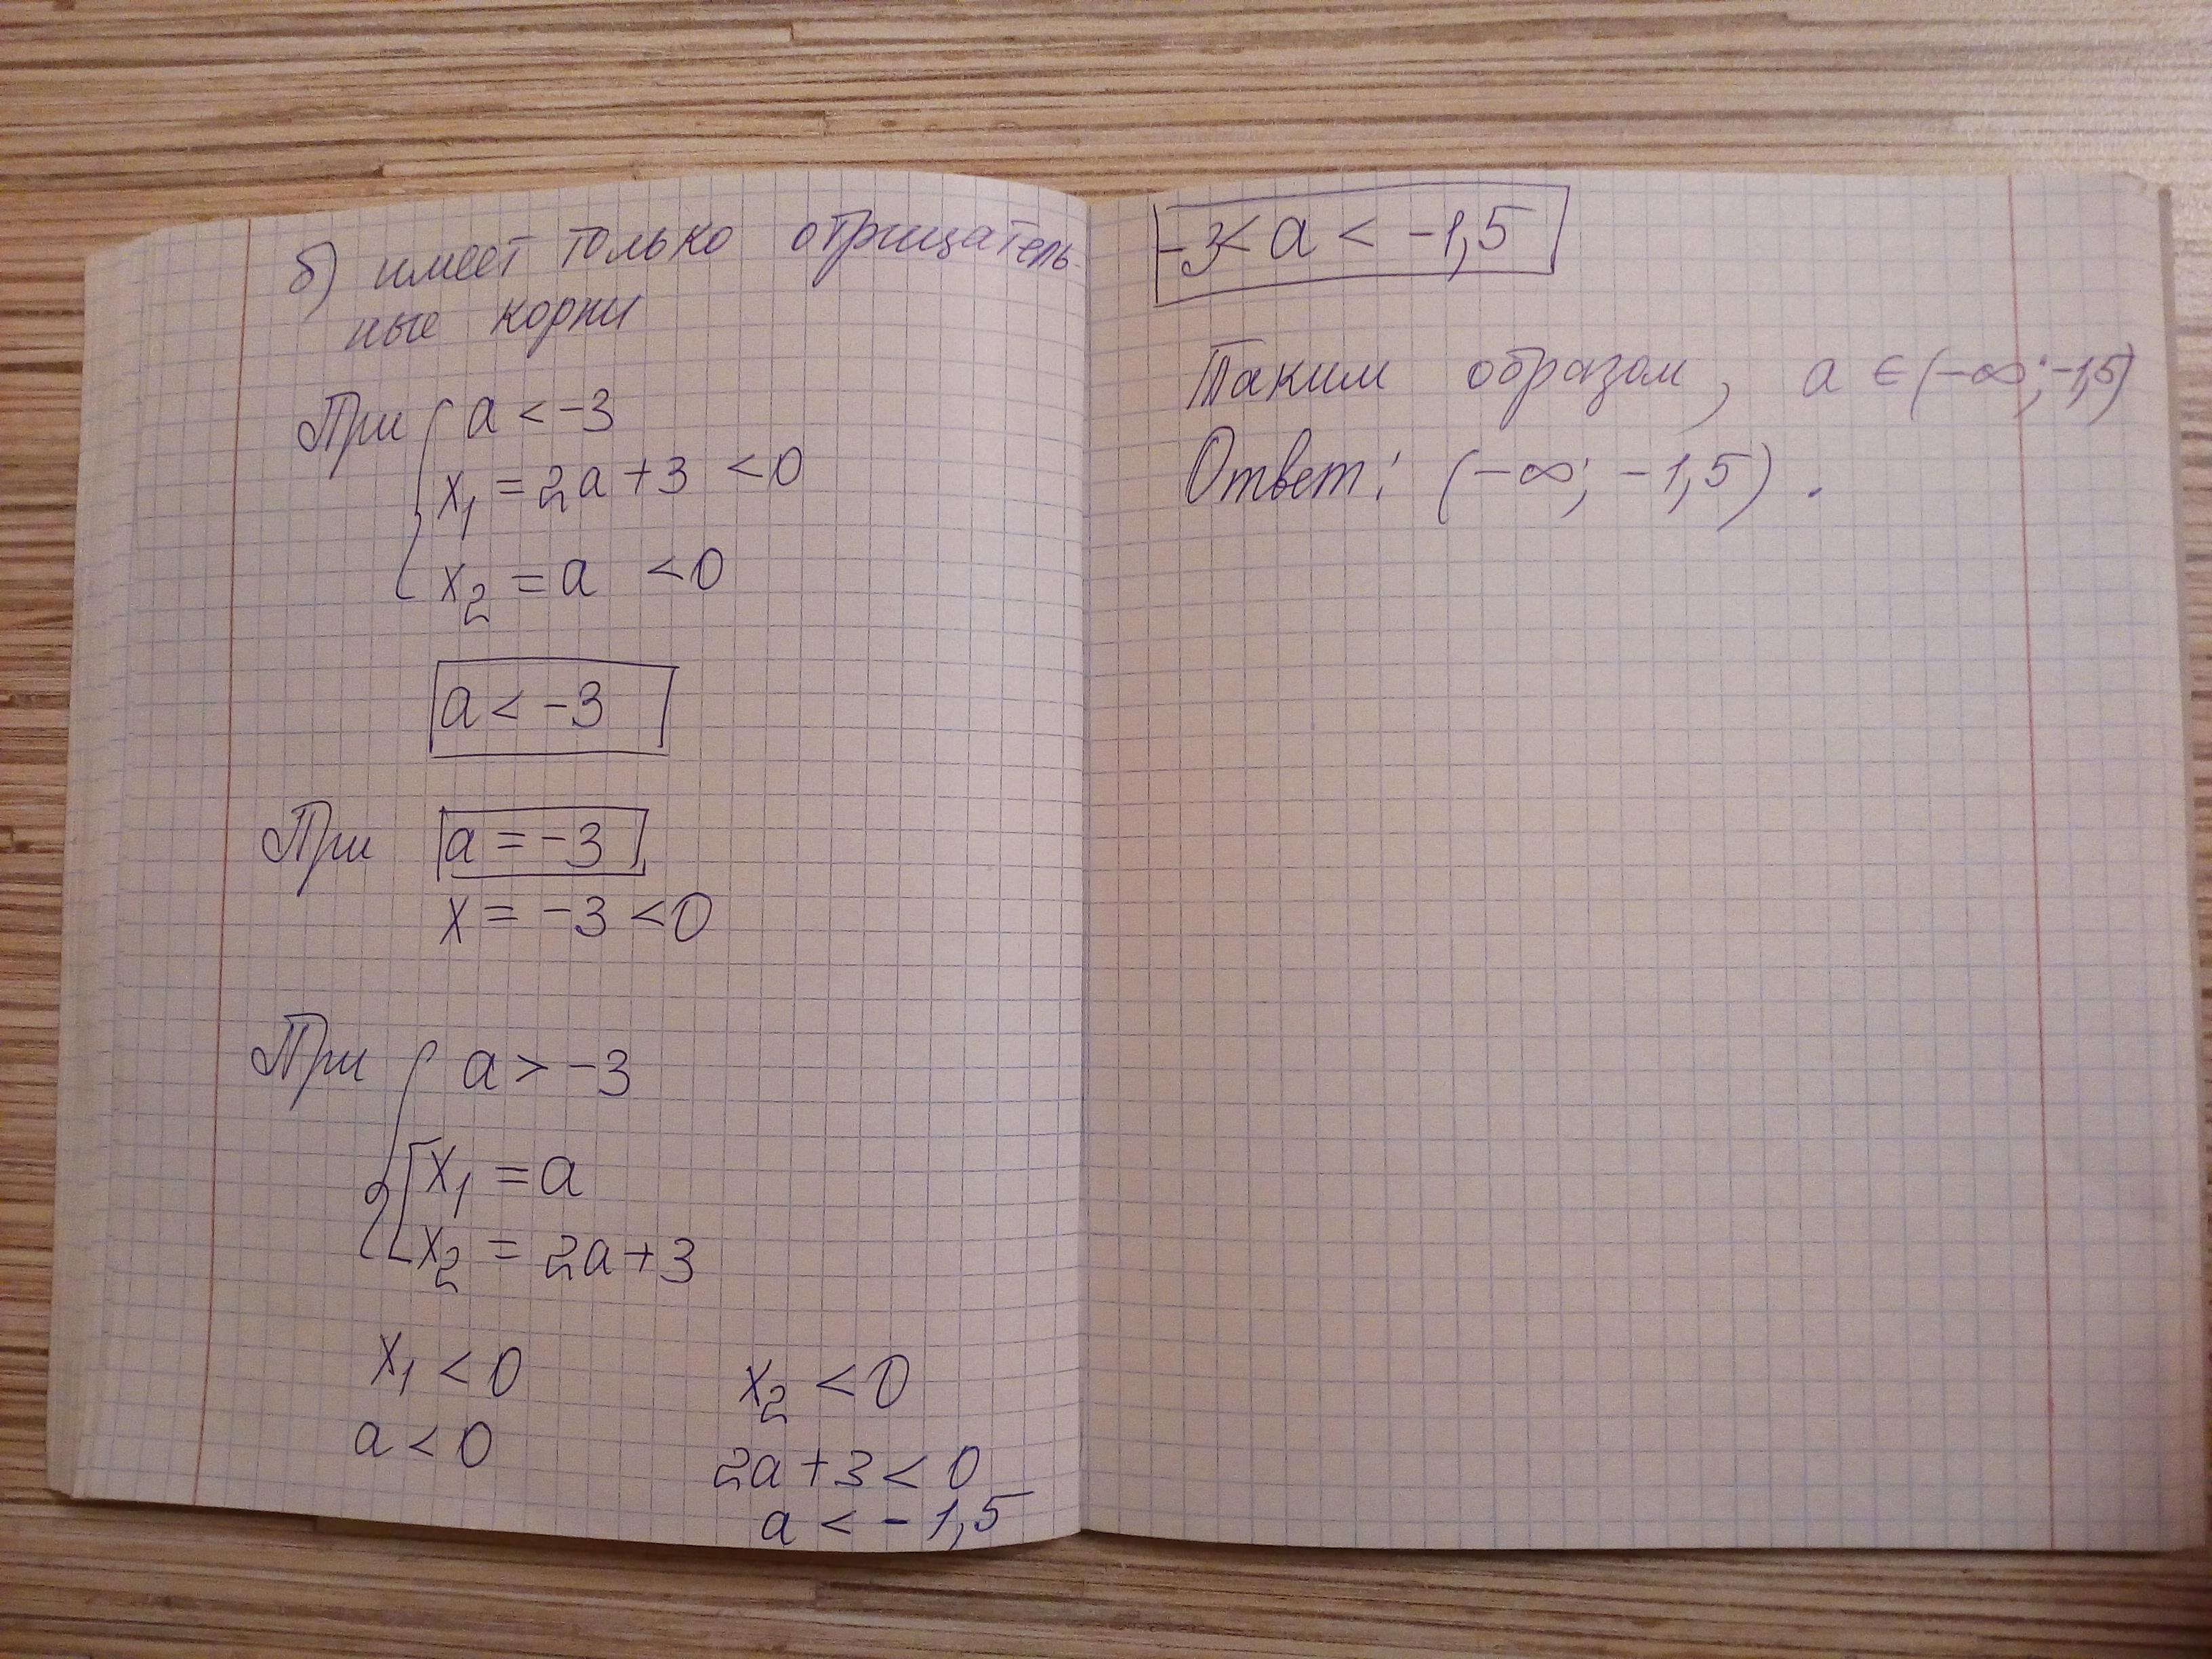 б) имеет только отрицатель-
ные корни
При { a < -3
x₁ = 2a + 3 < 0
x₂ = a < 0
a < -3
При a = -3,
x = -3 < 0
При { a > -3
[ x₁ = a
x₂ = 2a + 3
x₁ < 0
a < 0
x₂ < 0
2a + 3 < 0
a < -1,5
-3 < a < -1,5
Таким образом, a ∈ (-∞; -1,5)
Ответ: (-∞; -1,5).